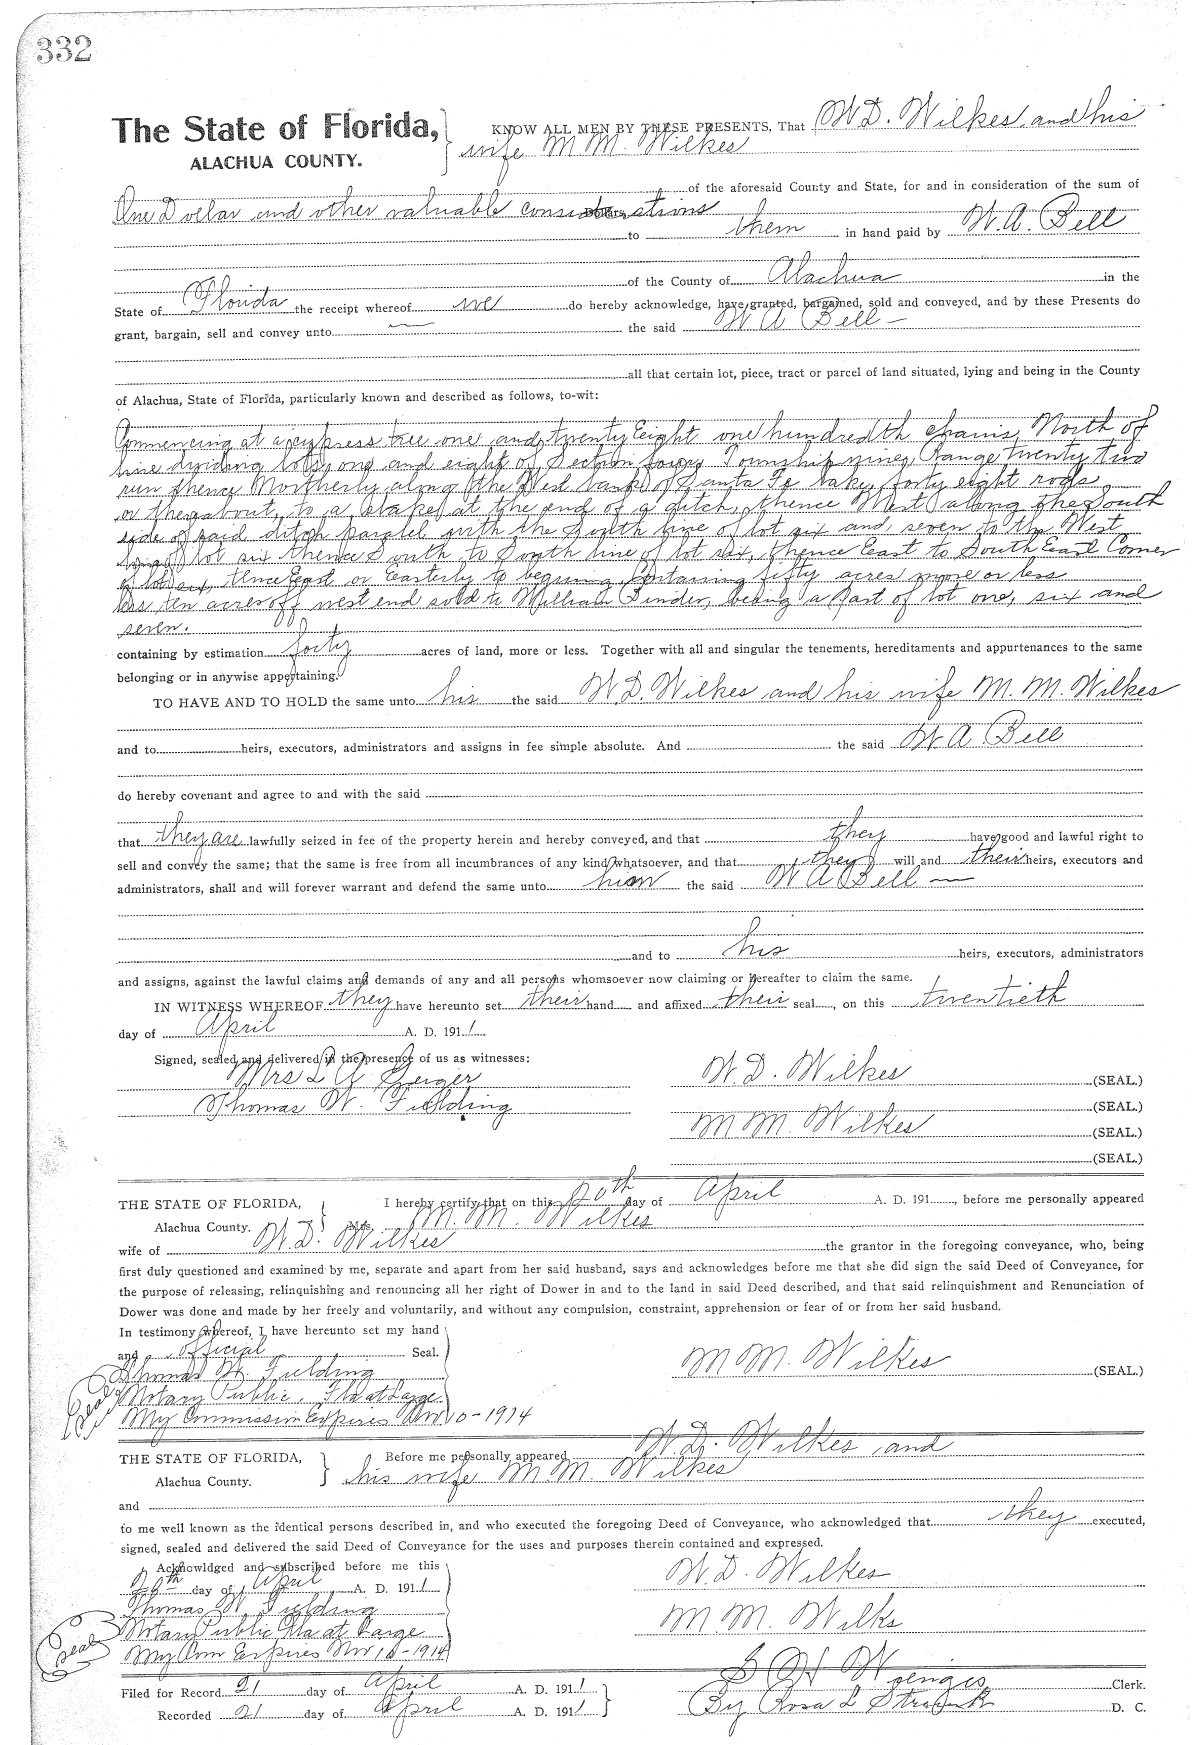 332
The State of Florida, KNOW ALL MEN BY THESE PRESENTS, That W.D. Wilkes and his
ALACHUA COUNTY. wife M M. Wilkes
of the aforesaid County and State, for and in consideration of the sum of
One Dollar and other valuable considerations Dollars
to them in hand paid by W. A. Bell
of the County of Alachua in the
State of Florida the receipt whereof we do hereby acknowledge, have granted, bargained, sold and conveyed, and by these Presents do
grant, bargain, sell and convey unto the said W A Bell
all that certain lot, piece, tract or parcel of land situated, lying and being in the County
of Alachua, State of Florida, particularly known and described as follows, to-wit:
Commencing at a cypress tree one and twenty Eight one hundredth chains North of
line dividing lots one and eight of Section four, Township nine, Range twenty two
run thence Northerly along the West bank of Santa Fe Lake, forty eight rods
or thereabout, to a stake at the end of a ditch, thence West along the South
side of said ditch parallel with the South line of lot six and seven to the West
line of lot six thence South to South line of lot six, thence East to South East Corner
of lot six, tence East or Easterly to begining, Containing fifty acres more or less
less ten acres off west end sold to William Pinder, being a part of lot one, six and
seven.
containing by estimation forty acres of land, more or less. Together with all and singular the tenements, hereditaments and appurtenances to the same
belonging or in anywise appertaining.
TO HAVE AND TO HOLD the same unto his the said W.D. Wilkes and his wife M. M. Wilkes
and to heirs, executors, administrators and assigns in fee simple absolute. And the said W A Bell
do hereby covenant and agree to and with the said
that they are lawfully seized in fee of the property herein and hereby conveyed, and that they have good and lawful right to
sell and convey the same; that the same is free from all incumbrances of any kind whatsoever, and that they will and their heirs, executors and
administrators, shall and will forever warrant and defend the same unto him the said W A Bell
and to his heirs, executors, administrators
and assigns, against the lawful claims and demands of any and all persons whomsoever now claiming or hereafter to claim the same.
IN WITNESS WHEREOF they have hereunto set their hand and affixed their seal, on this twentieth
day of April A. D. 1911
Signed, sealed and delivered in the presence of us as witnesses:
Mrs L A Geiger W. D. Wilkes (SEAL.)
Thomas W. Fielding (SEAL.)
M M. Wilkes (SEAL.)
(SEAL.)
THE STATE OF FLORIDA, I hereby certify that on this 20th day of April A. D. 191, before me personally appeared
Alachua County. Mrs. M. M. Wilkes
wife of W.D. Wilkes the grantor in the foregoing conveyance, who, being
first duly questioned and examined by me, separate and apart from her said husband, says and acknowledges before me that she did sign the said Deed of Conveyance, for
the purpose of releasing, relinquishing and renouncing all her right of Dower in and to the land in said Deed described, and that said relinquishment and Renunciation of
Dower was done and made by her freely and voluntarily, and without any compulsion, constraint, apprehension or fear of or from her said husband.
In testimony whereof, I have hereunto set my hand
and official Seal. M M. Wilkes (SEAL.)
Thomas W. Fielding
Seal Notary Public, Fla at Large
My Commission Expires Nov 10-1914
THE STATE OF FLORIDA, Before me personally appeared W.D. Wilkes and
Alachua County. his wife M.M. Wilkes
and
to me well known as the identical persons described in, and who executed the foregoing Deed of Conveyance, who acknowledged that they executed,
signed, sealed and delivered the said Deed of Conveyance for the uses and purposes therein contained and expressed.
Acknowldged and subscribed before me this
20th day of April A. D. 1911 W. D. Wilkes
Thomas W Fielding
Seal Notary Public Fla at Large M M. Wilks
My Com Expires Nov 10-1914
S H Wienges Clerk.
Filed for Record 21 day of April A. D. 1911
Recorded 21 day of April A. D. 1911 By Rosa L D. C.